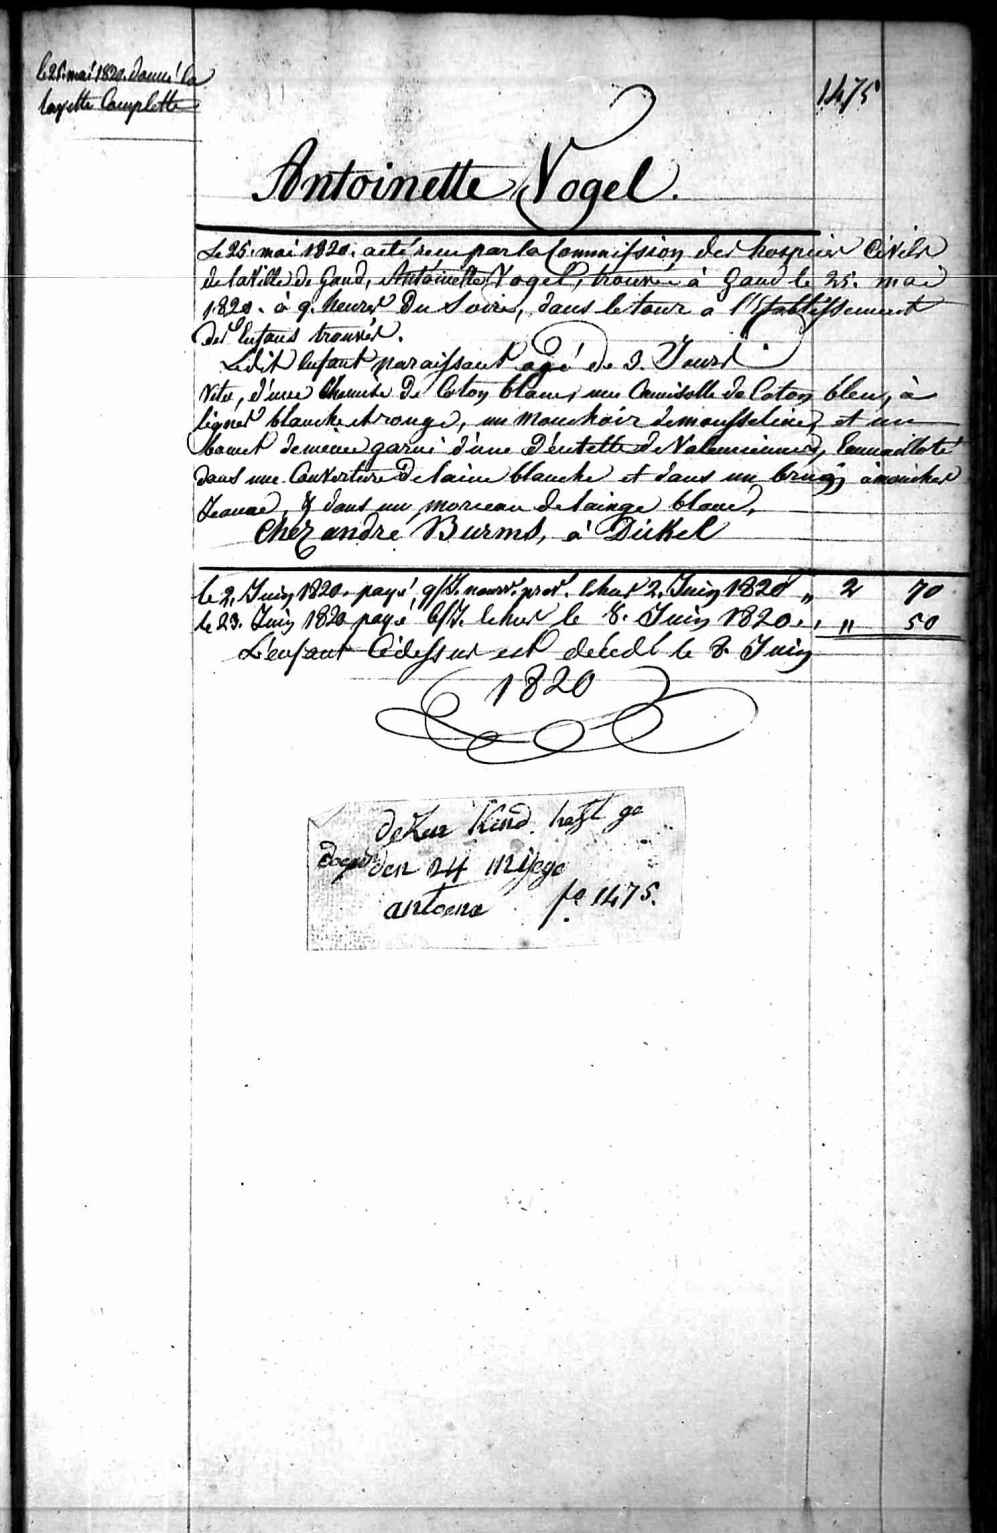 le 25. mai 1820. donné la
layette Complette
1475
Antoinette Vogel.
Le 25. mai 1820. a eté recu par la Commission des hospices Civils
de la Ville de Gand, Antoinette Vogel, trouvée à Gand le 25. mai
1820. à 9. heures Du Soire, dans le tour a l'Etablissement
des Enfans trouvés.
Ledit Enfant paraissant agé de 2. Jours
Vétu, d'une Chemise De Coton blanc, une Camisolle de Coton bleu, à
lignes blanche et rouge, un mouchoir de mousseline, et un
bonnet de meme garni d'une Dentette de Valenciennes, Emmailloté
dans une Couverture De laine blanche et dans un à mouches
Jeaune, & dans un morceau de lainge blanc,
Chez andré Burms, à Dickel
le 2. Juin 1820. payé Echus 2. Juin 1820 " 2 70
le 23. Juin 1820 payé Echus le 8. Juin 1820. " 50
L'enfant Cidessus est décedé le 8. Juin
1820
dezen Kind heeft ge
den 24 meye
antoena fo 1475.